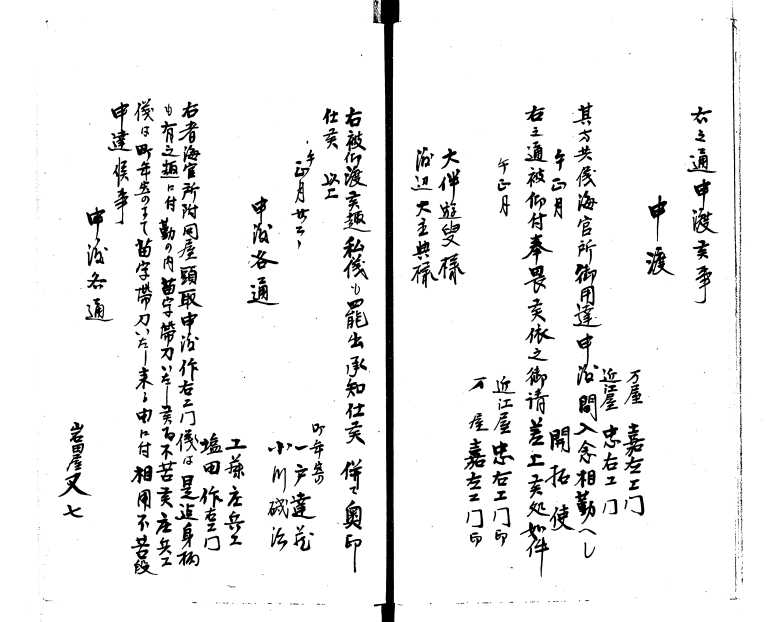 右之通申渡候事
申渡
万屋 嘉左エ門
近江屋 忠右エ門
其方共儀海官所御用達申渡間入念相勤へし
午正月 開拓使
右之通被仰付奉畏候依之御請差上候処如件
午正月
近江屋 忠右エ門印
万屋 嘉左エ門印
大伴遊叟様
渡辺大主典様
右被仰渡候趣私儀も罷出承知仕候 併て奥印
仕候 以上
午正月廿二日
町年寄
一戸達蔵
小川磯治
申渡各通
工藤庄兵エ
塩田作右エ門
右者海官所附問屋頭取申渡作右エ門儀は是迄身柄
も有之趣に付勤の内苗字帯刀いたし候ても不苦候庄兵エ
儀は町年寄のまて苗字帯刀いたし来る由に付相用不苦段
申達候事
申渡各通
岩田屋又七